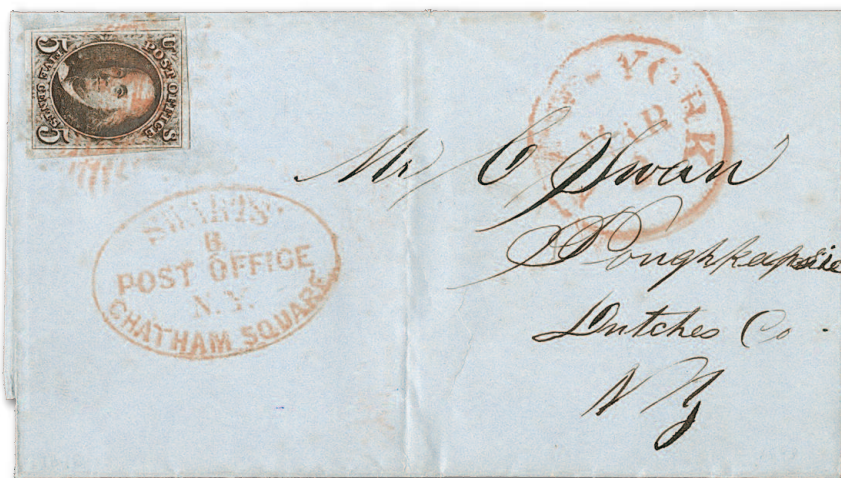 U S
POST OFFICE
FIVE CENTS
5 5
SWARTS'
B.
POST OFFICE
N.Y.
CHATHAM SQUARE
YORK
MAR
Mr C Swan
Poughkeepsie
Dutches Co.
NY